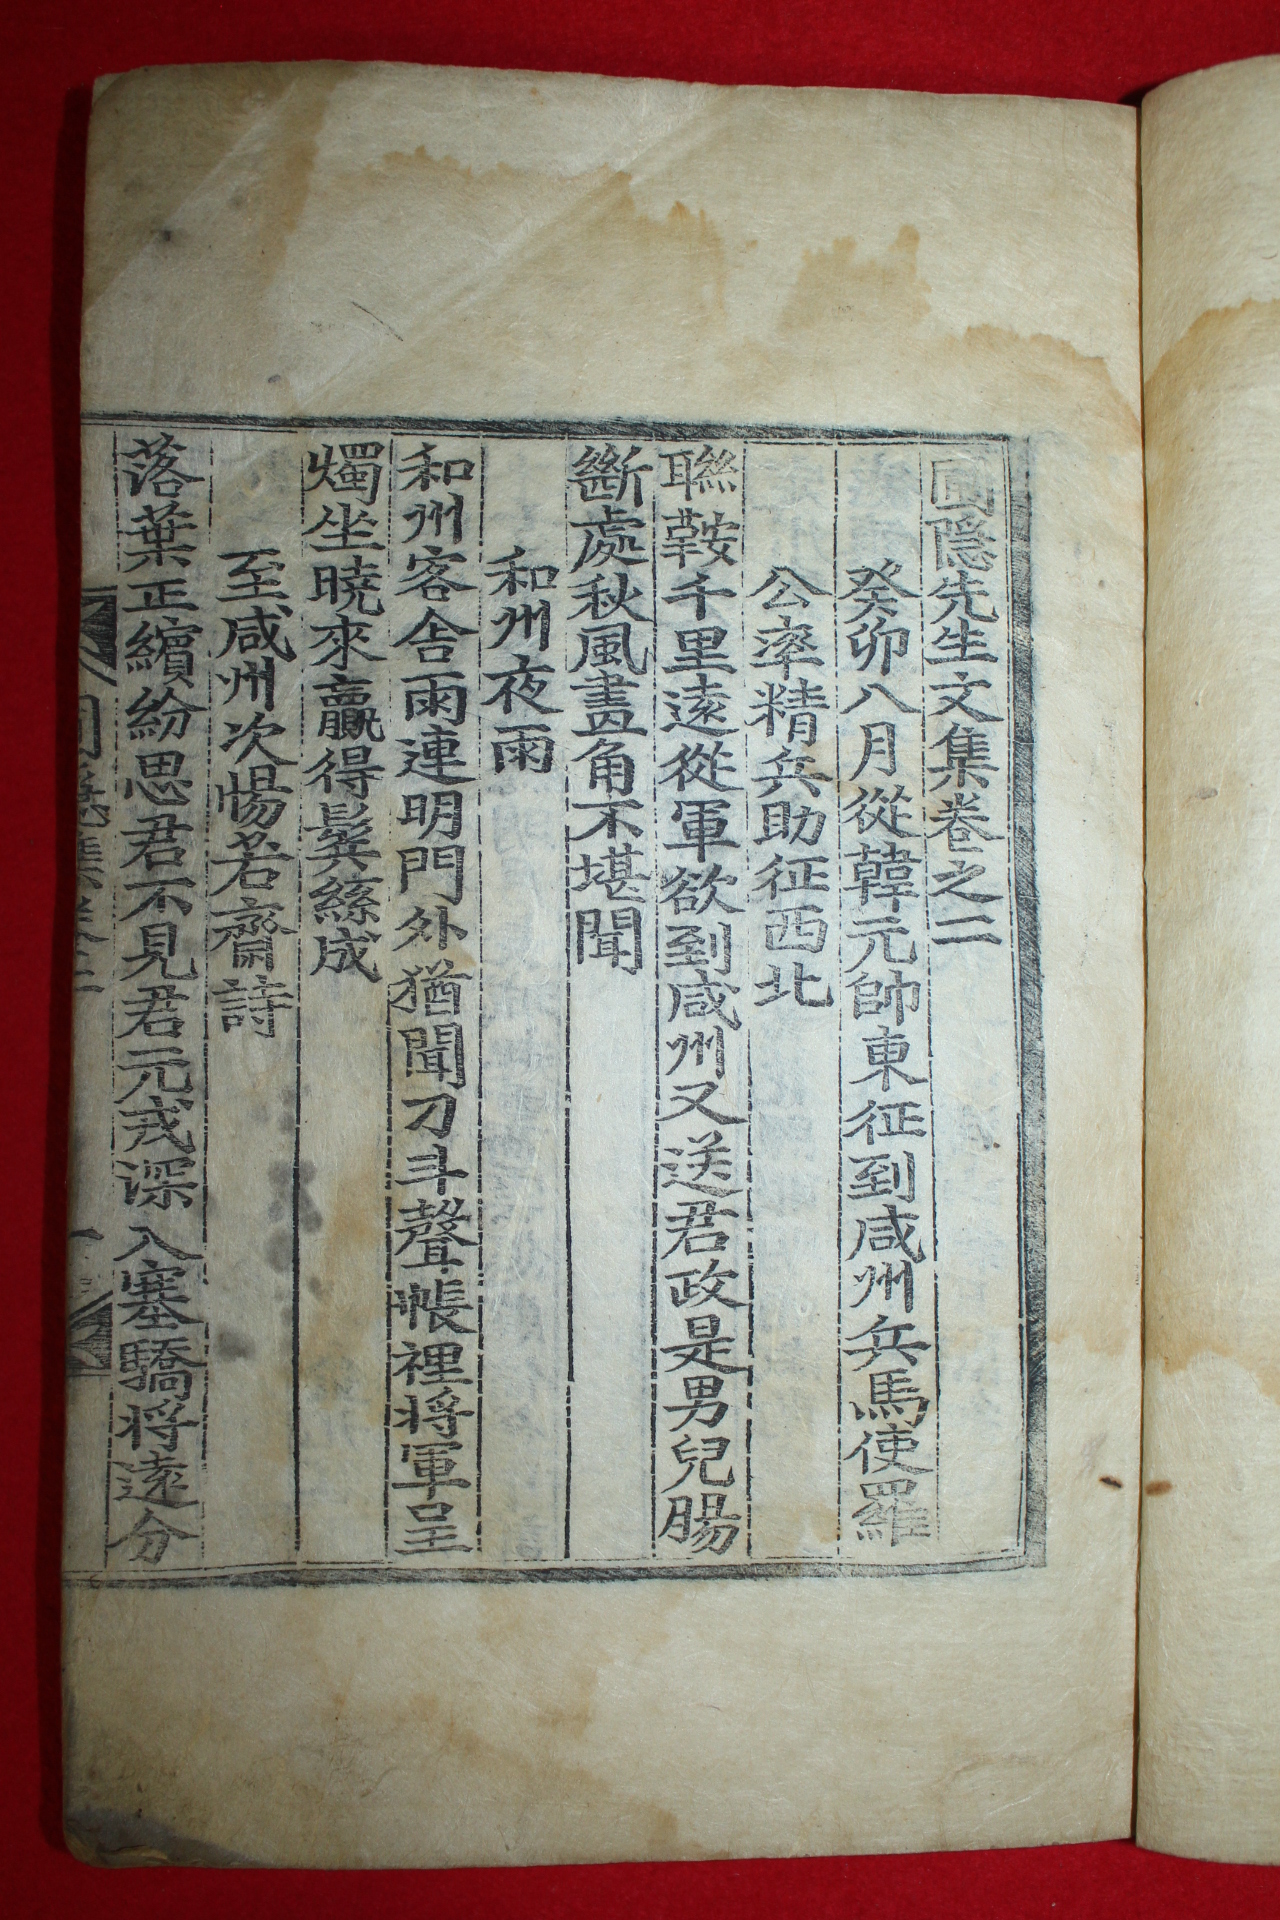 圃隱先生文集卷之二
癸卯八月從韓元帥東征到咸州兵馬使羅
公率精兵助征西北
聯鞍千里遠從軍欲到咸州又送君政是男兒腸
斷處秋風畫角不堪聞
和州夜雨
和州客舍雨連明門外猶聞刀斗聲帳裡將軍呈
燭坐曉來贏得鬂絲成
至咸州次惕若齋詩
落葉正繽紛思君不見君元戎深入塞驕將遠分
圃隱集卷二
一